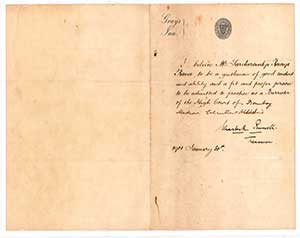 Gray's
Inn.
I believe Mr
to be a gentleman of good conduct
and ability and a fit and proper person
to be admitted to practise as a Barrister
of the High Court of Bombay
Madras Calcutta
Charles Russell
Treasurer
January 20th